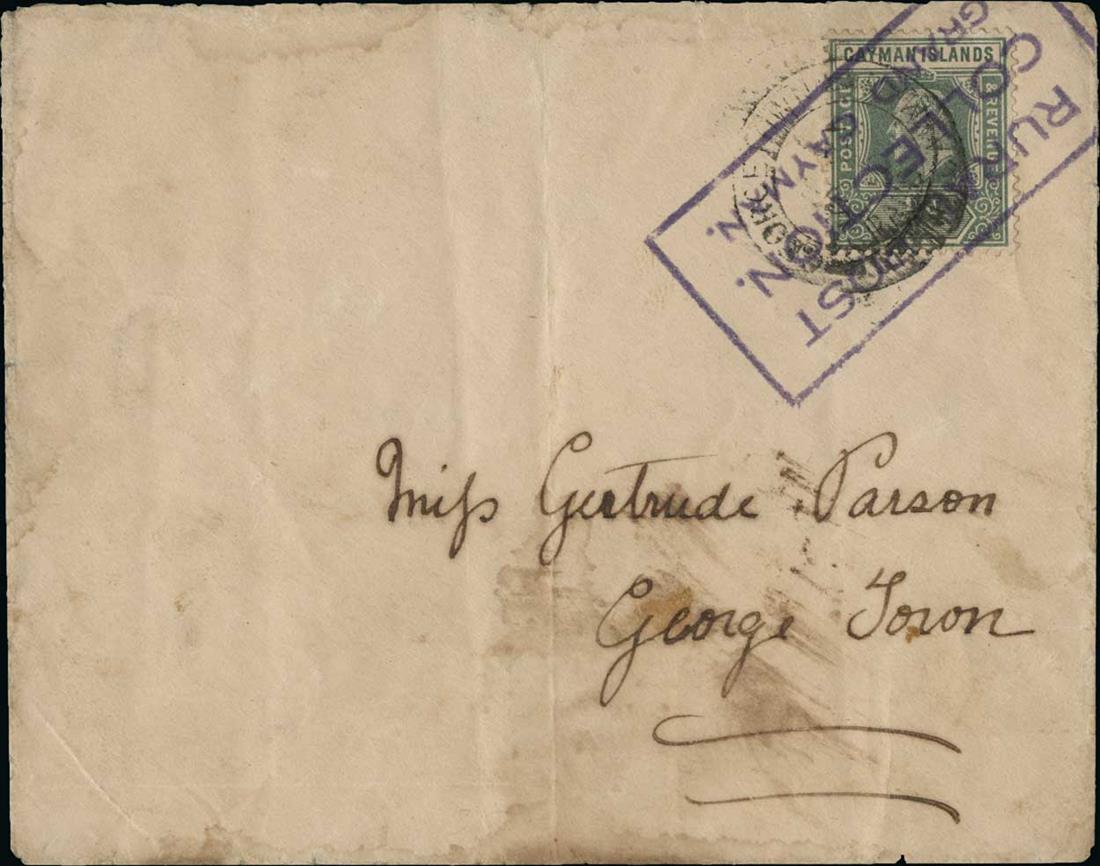 CAYMAN ISLANDS
POSTAGE & REVENUE
RURAL POST
COLLECTION.
GRAND CAYMAN.
Miss Gertrude Parson
George Town